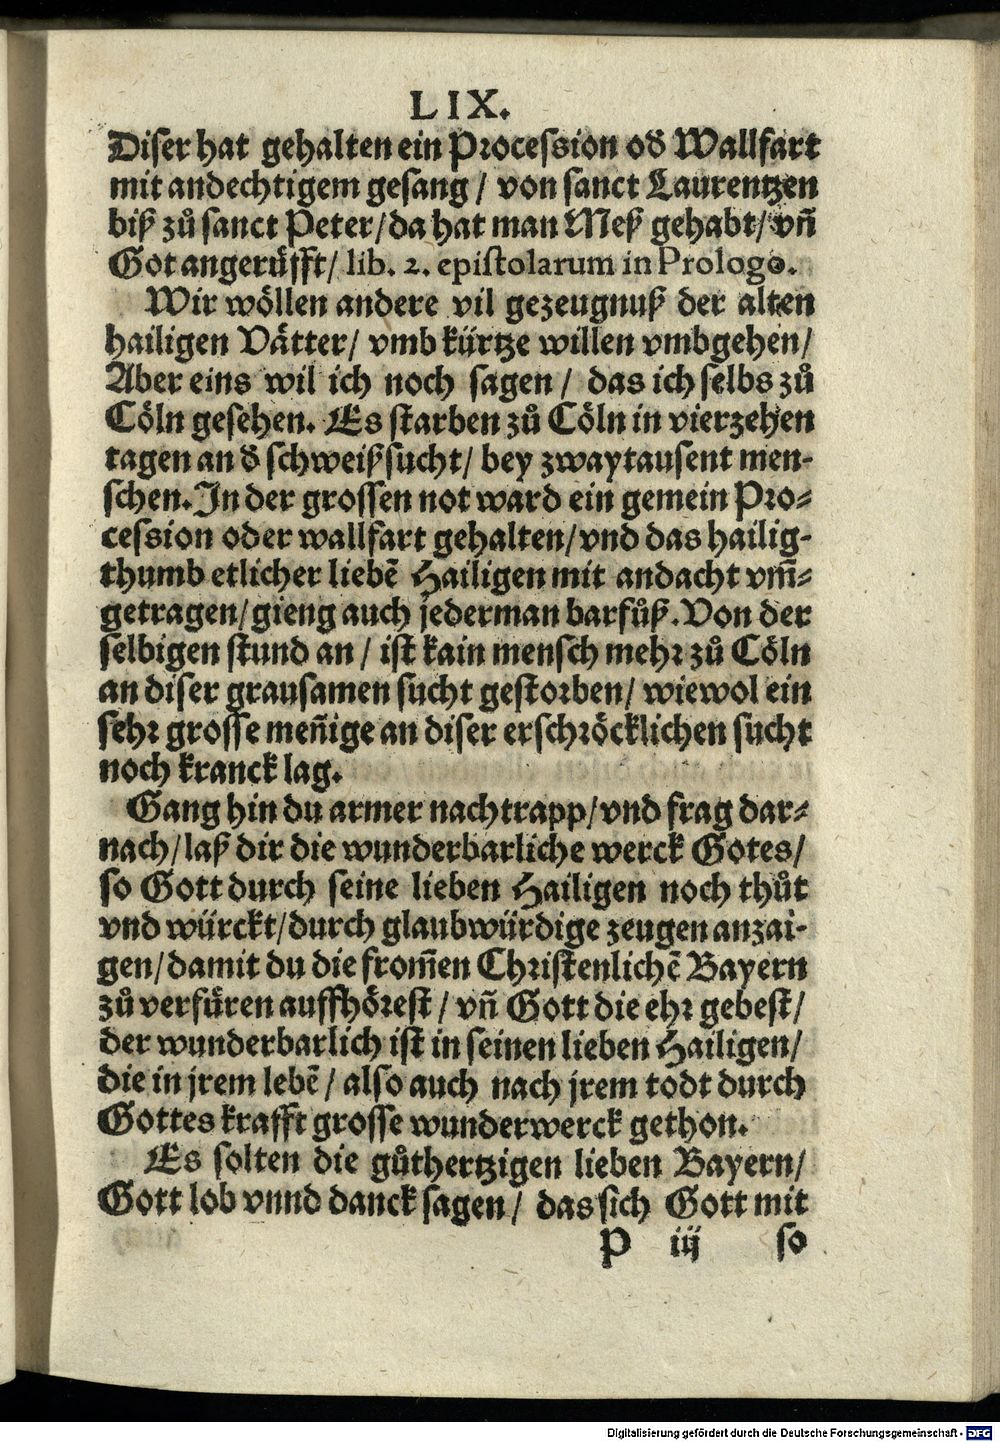 LIX.
Diser hat gehalten ein Procession od̕ Wallfart
mit andechtigem gesang / von sanct Laurentzen
biß zů sanct Peter / da hat man Meß gehabt / vñ
Got angerüfft / lib. 2. epistolarum in Prologo.
Wir wöllen andere vil gezeugnuß der alten
hailigen Vätter / vmb kürtze willen vmbgehen /
Aber eins wil ich noch sagen / das ich selbs zů
Cöln gesehen. Es starben zů Cöln in vierzehen
tagen an d̕ schweißsucht / bey zwaytausent men-
schen. In der grossen not ward ein gemein Pro-
cession oder wallfart gehalten / vnd das hailig-
thumb etlicher liebẽ Hailigen mit andacht vm̃-
getragen / gieng auch jederman barfůß. Von der
selbigen stund an / ist kain mensch mehr zů Cöln
an diser grausamen sucht gestorben / wiewol ein
sehr grosse meñige an diser erschröcklichen sucht
noch kranck lag.
Gang hin du armer nachtrapp / vnd frag dar-
nach / laß dir die wunderbarliche werck Gotes /
so Gott durch seine lieben Hailigen noch thůt
vnd würckt / durch glaubwürdige zeugen anzai-
gen / damit du die from̃en Christenlichẽ Bayern
zů verfüren auffhörest / vñ Gott die ehr gebest /
der wunderbarlich ist in seinen lieben Hailigen /
die in jrem lebẽ / also auch nach jrem todt durch
Gottes krafft grosse wunderwerck gethon.
Es solten die gůthertzigen lieben Bayern /
Gott lob vnnd danck sagen / das sich Gott mit
P iij so
Digitalisierung gefördert durch die Deutsche Forschungsgemeinschaft - DFG